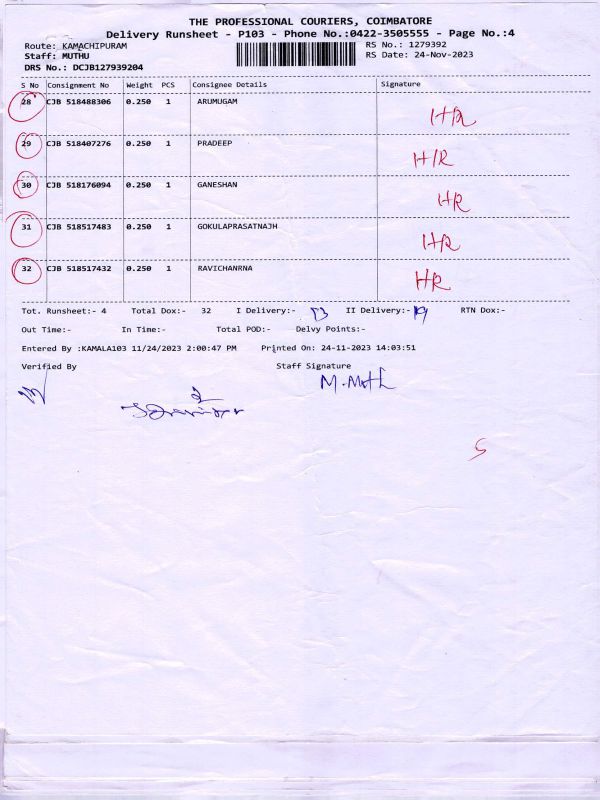 THE PROFESSIONAL COURIERS, COIMBATORE
Delivery Runsheet - P103 - Phone No.:0422-3505555 - Page No.:4
Route: KAMACHIPURAM RS No.: 1279392
Staff: MUTHU RS Date: 24-Nov-2023
DRS No.: DCJB127939204
S No Consignment No Weight PCS Consignee Details Signature
28 CJB 518488306 0.250 1 ARUMUGAM HR
29 CJB 518407276 0.250 1 PRADEEP HR
30 CJB 518176094 0.250 1 GANESHAN HR
31 CJB 518517483 0.250 1 GOKULAPRASATNAJH HR
32 CJB 518517432 0.250 1 RAVICHANRNA HR
Tot. Runsheet:- 4 Total Dox:- 32 I Delivery:- 13 II Delivery:- 19 RTN Dox:-
Out Time:- In Time:- Total POD:- Delvy Points:-
Entered By :KAMALA103 11/24/2023 2:00:47 PM Printed On: 24-11-2023 14:03:51
Verified By Staff Signature
M.Muth